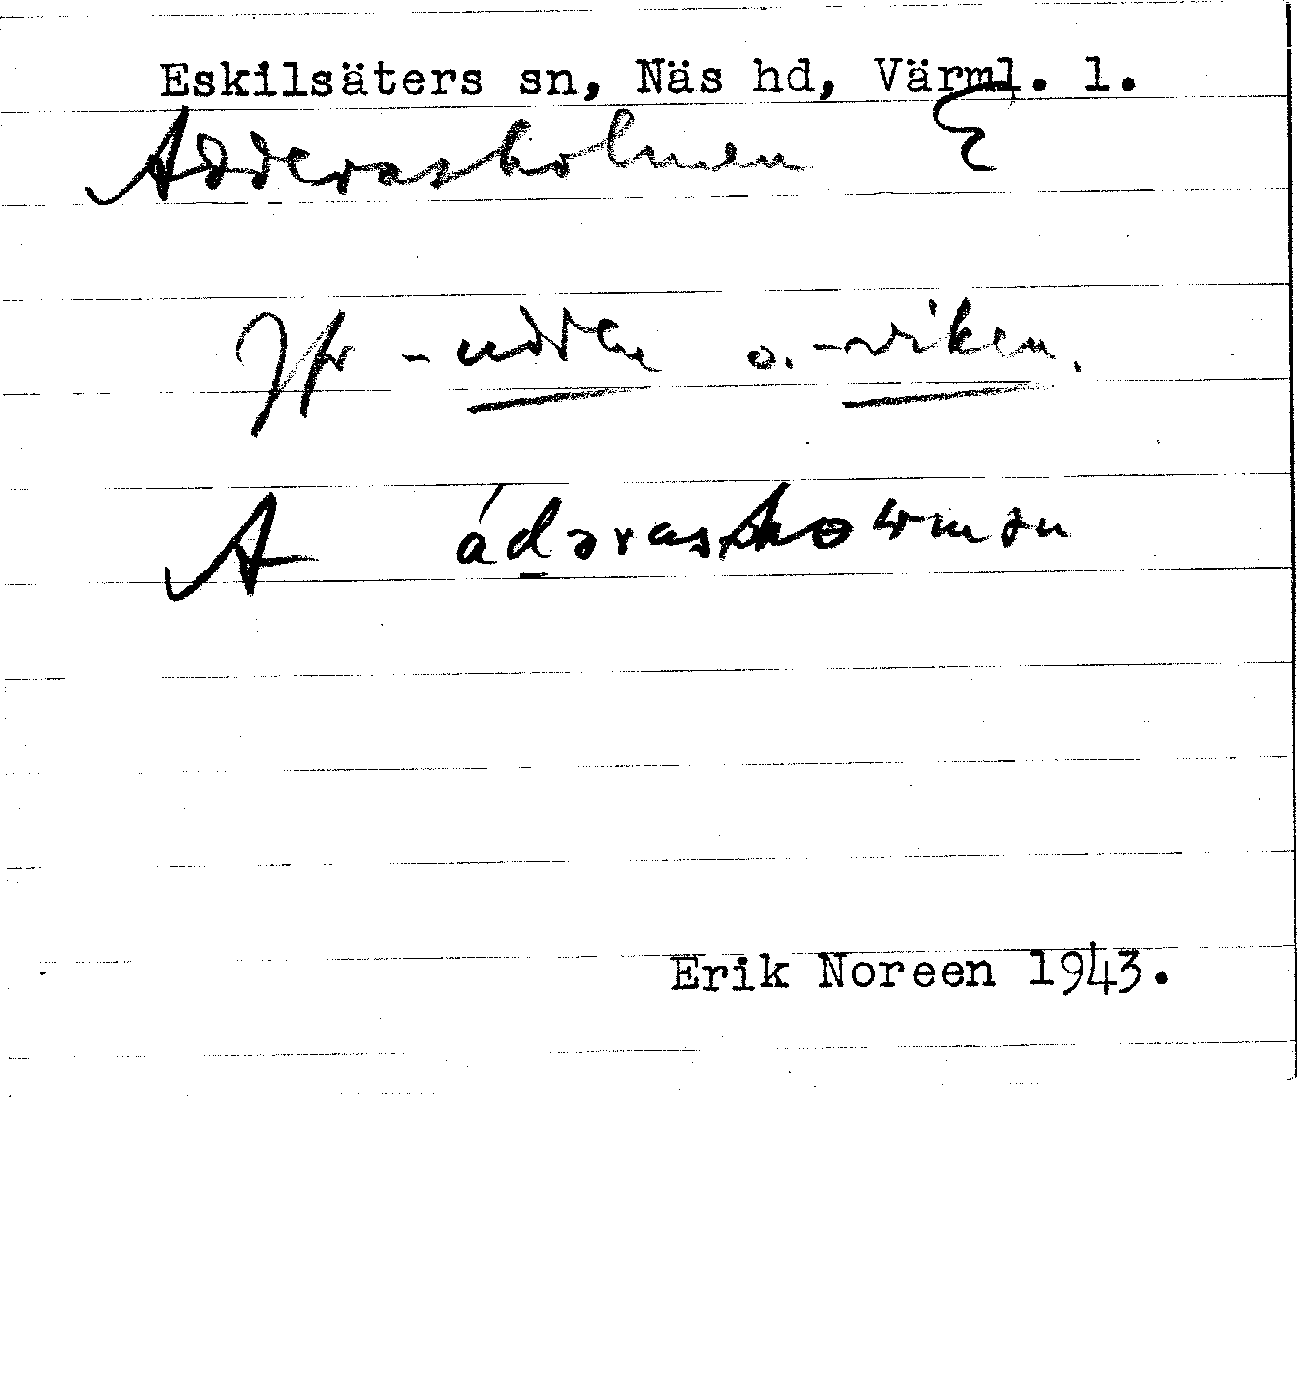 Eskilsäters sn, Näs hd, Värml. l.
Adderasholmen E
Jfr -udden o. -viken.
A ádəras
Erik Noreen 1943.